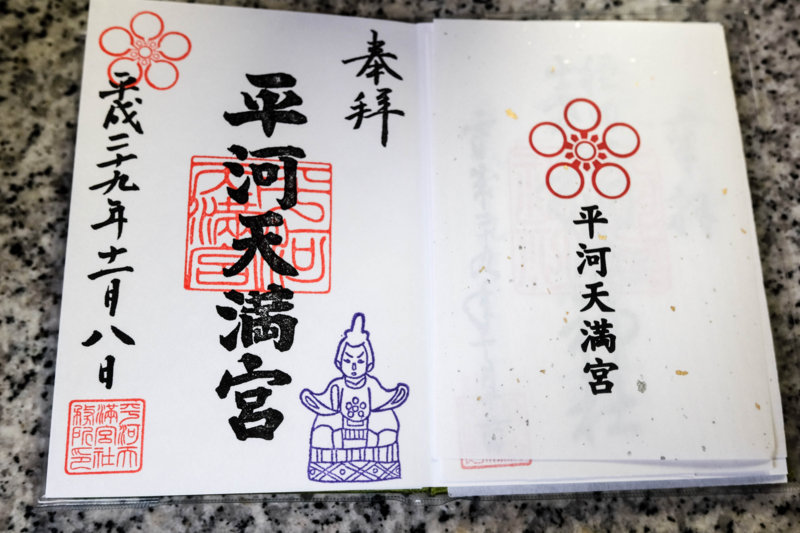 奉拝
平河天満宮
平成二十九年十一月八日
平河天満宮
平河天
満宮社
務所印
平河天満宮